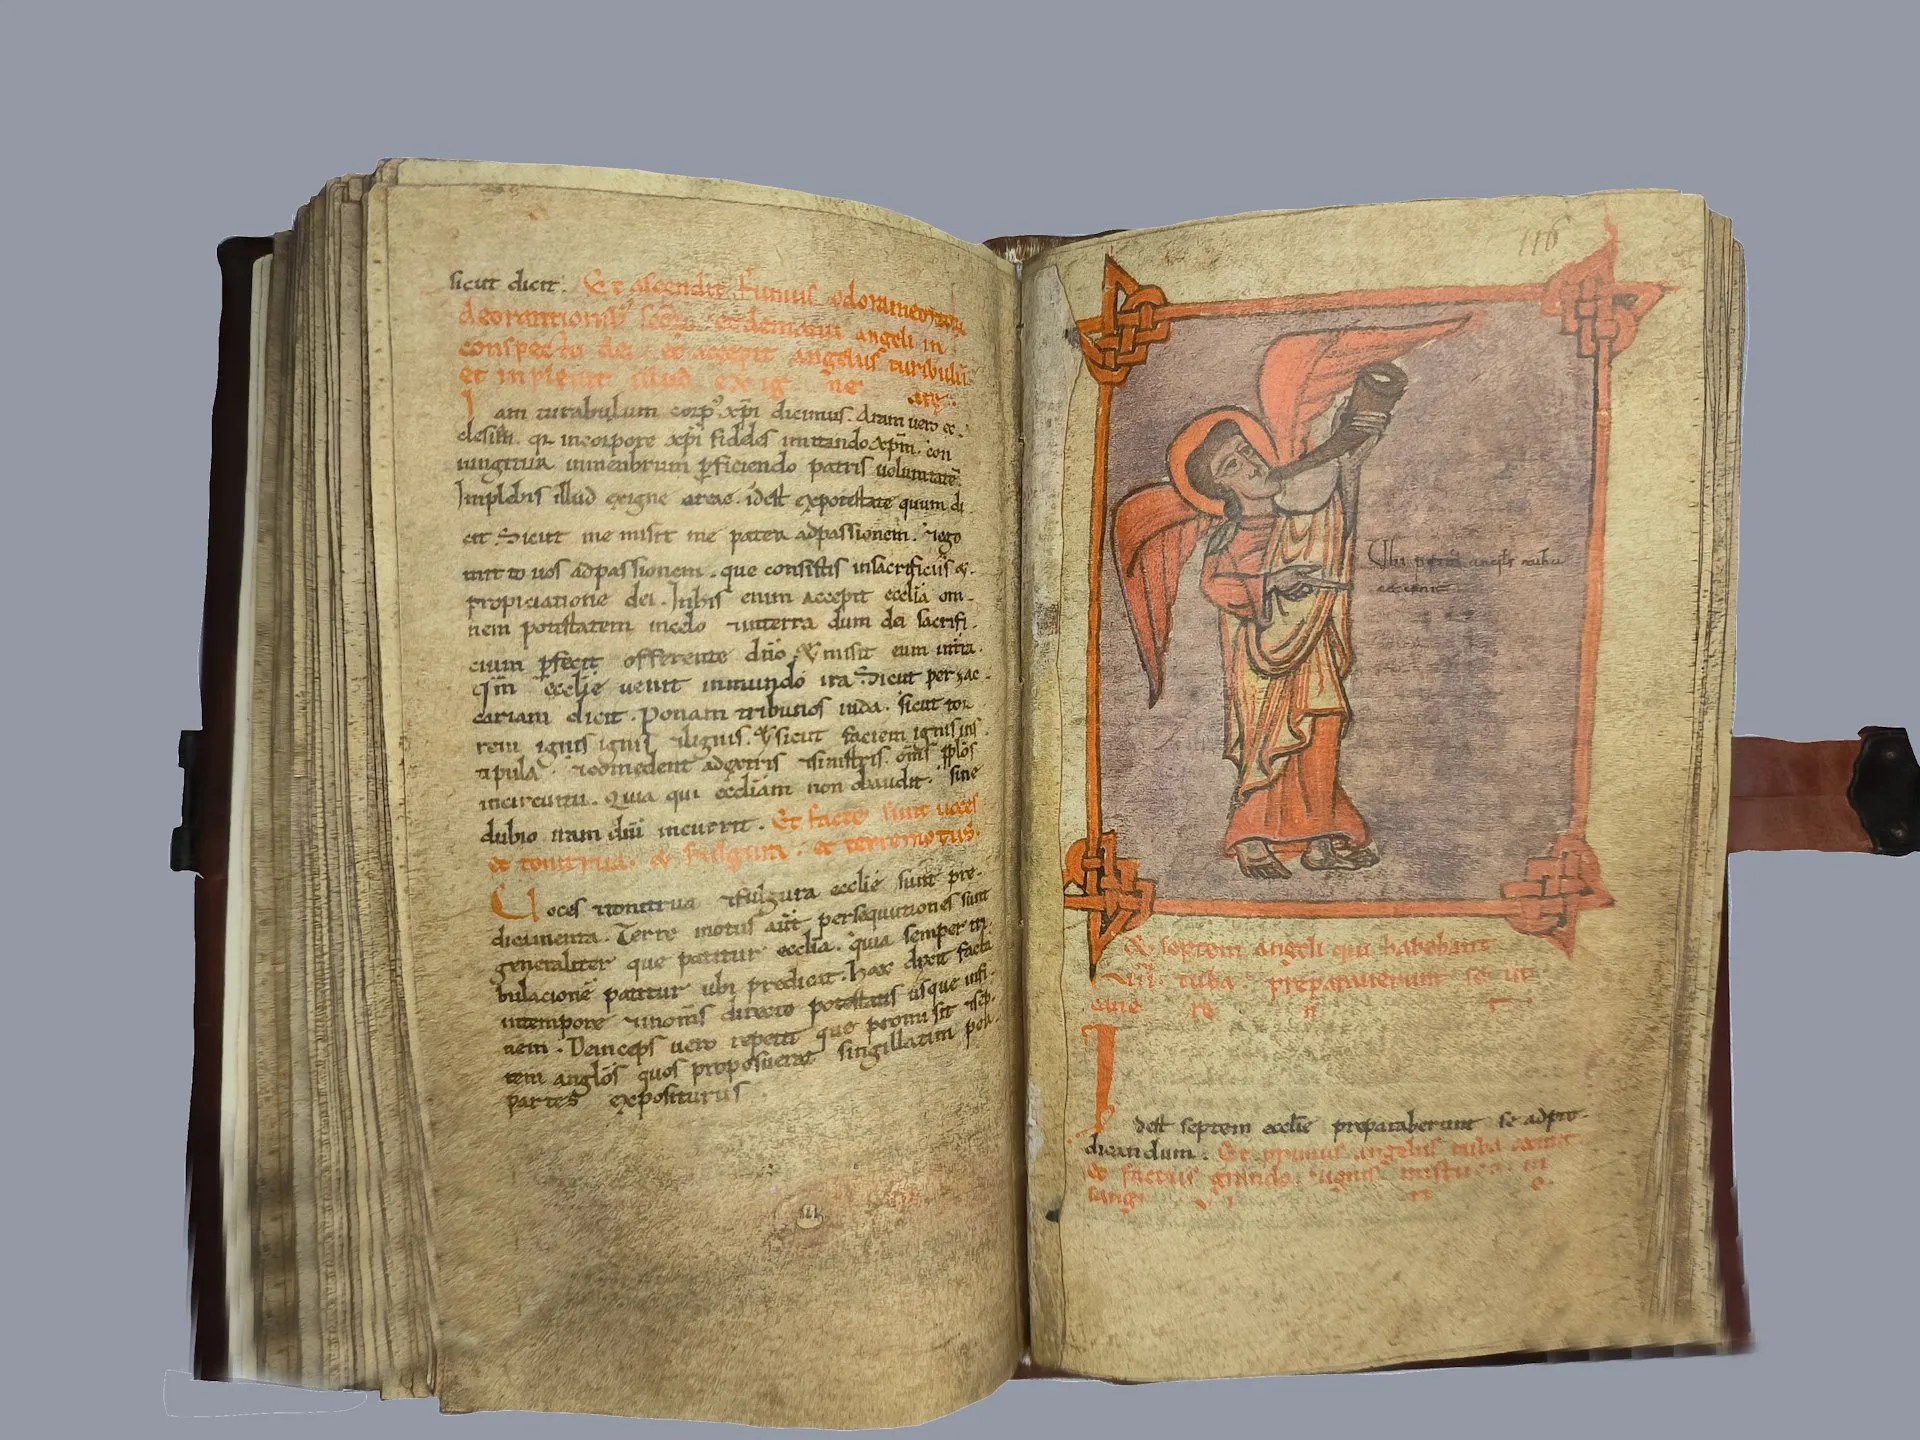 sicut dicit. Et ascendit fumus odoramentorum
deorationib; scōrum de manu angeli in
conspecto dei. et accepit angelus turibulū
et inplevit illud ex ig ne
are.
Iam turabulum corp' xp̄i dicimus. Aram vero ec
clesiā. qr incorpore xp̄i fiddes imitando xp̄m. con
iungitur membrum p̱ficiendo patris voluntatē
Implebis illud exigne areae. idest expotestate quum di
cit Sicut me misit me pater adpassionem.
mitto vos adpassionem. que consistis insacrificiis
propiciatione dei. Inhis enim accepit ecclia om
nem potestatem incelo interra dum dei sacrifi
cium p̱fecit offerente dño. & misit eum intra.
ecclie venit inmundo ira Sicut per zac
cariam dicit. Ponam tribunos iuda. sicut tor
rem ignis lignis. & sicut faciem ignis ins
tipula. comedent adextris sinistris. om̄s pp̱lōs
incircuitu. Quia qui eccliam non obaudit. sine
dubio iram dñi incurrit. Et facte sunt uoces
et tonitrua. & fulgura. et terremotus.
Uoces tonitrua fulgura ecclie sunt pre
dicamenta. Terre motus aūt persequutiones sunt
generaliter que patitur ecclia. quia semper tri
bulacionē patitur ubi predicat. Hax dixit facta
intempore potestatis usque infi
nem. Deinceps vero repetit que promisit sep
tem anglos quos proposuerat singillatim per
partes expositurus
116
Ubi angls tuba
cecinit
Et septem angeli qui habebant
VII tuba preparauerunt se ut
cane re n t
Idest septem ecclie preparaberunt se adpre
dicandum. Et primus angelus tuba cecinit
et factus grando ignis mistus in
sangi n e